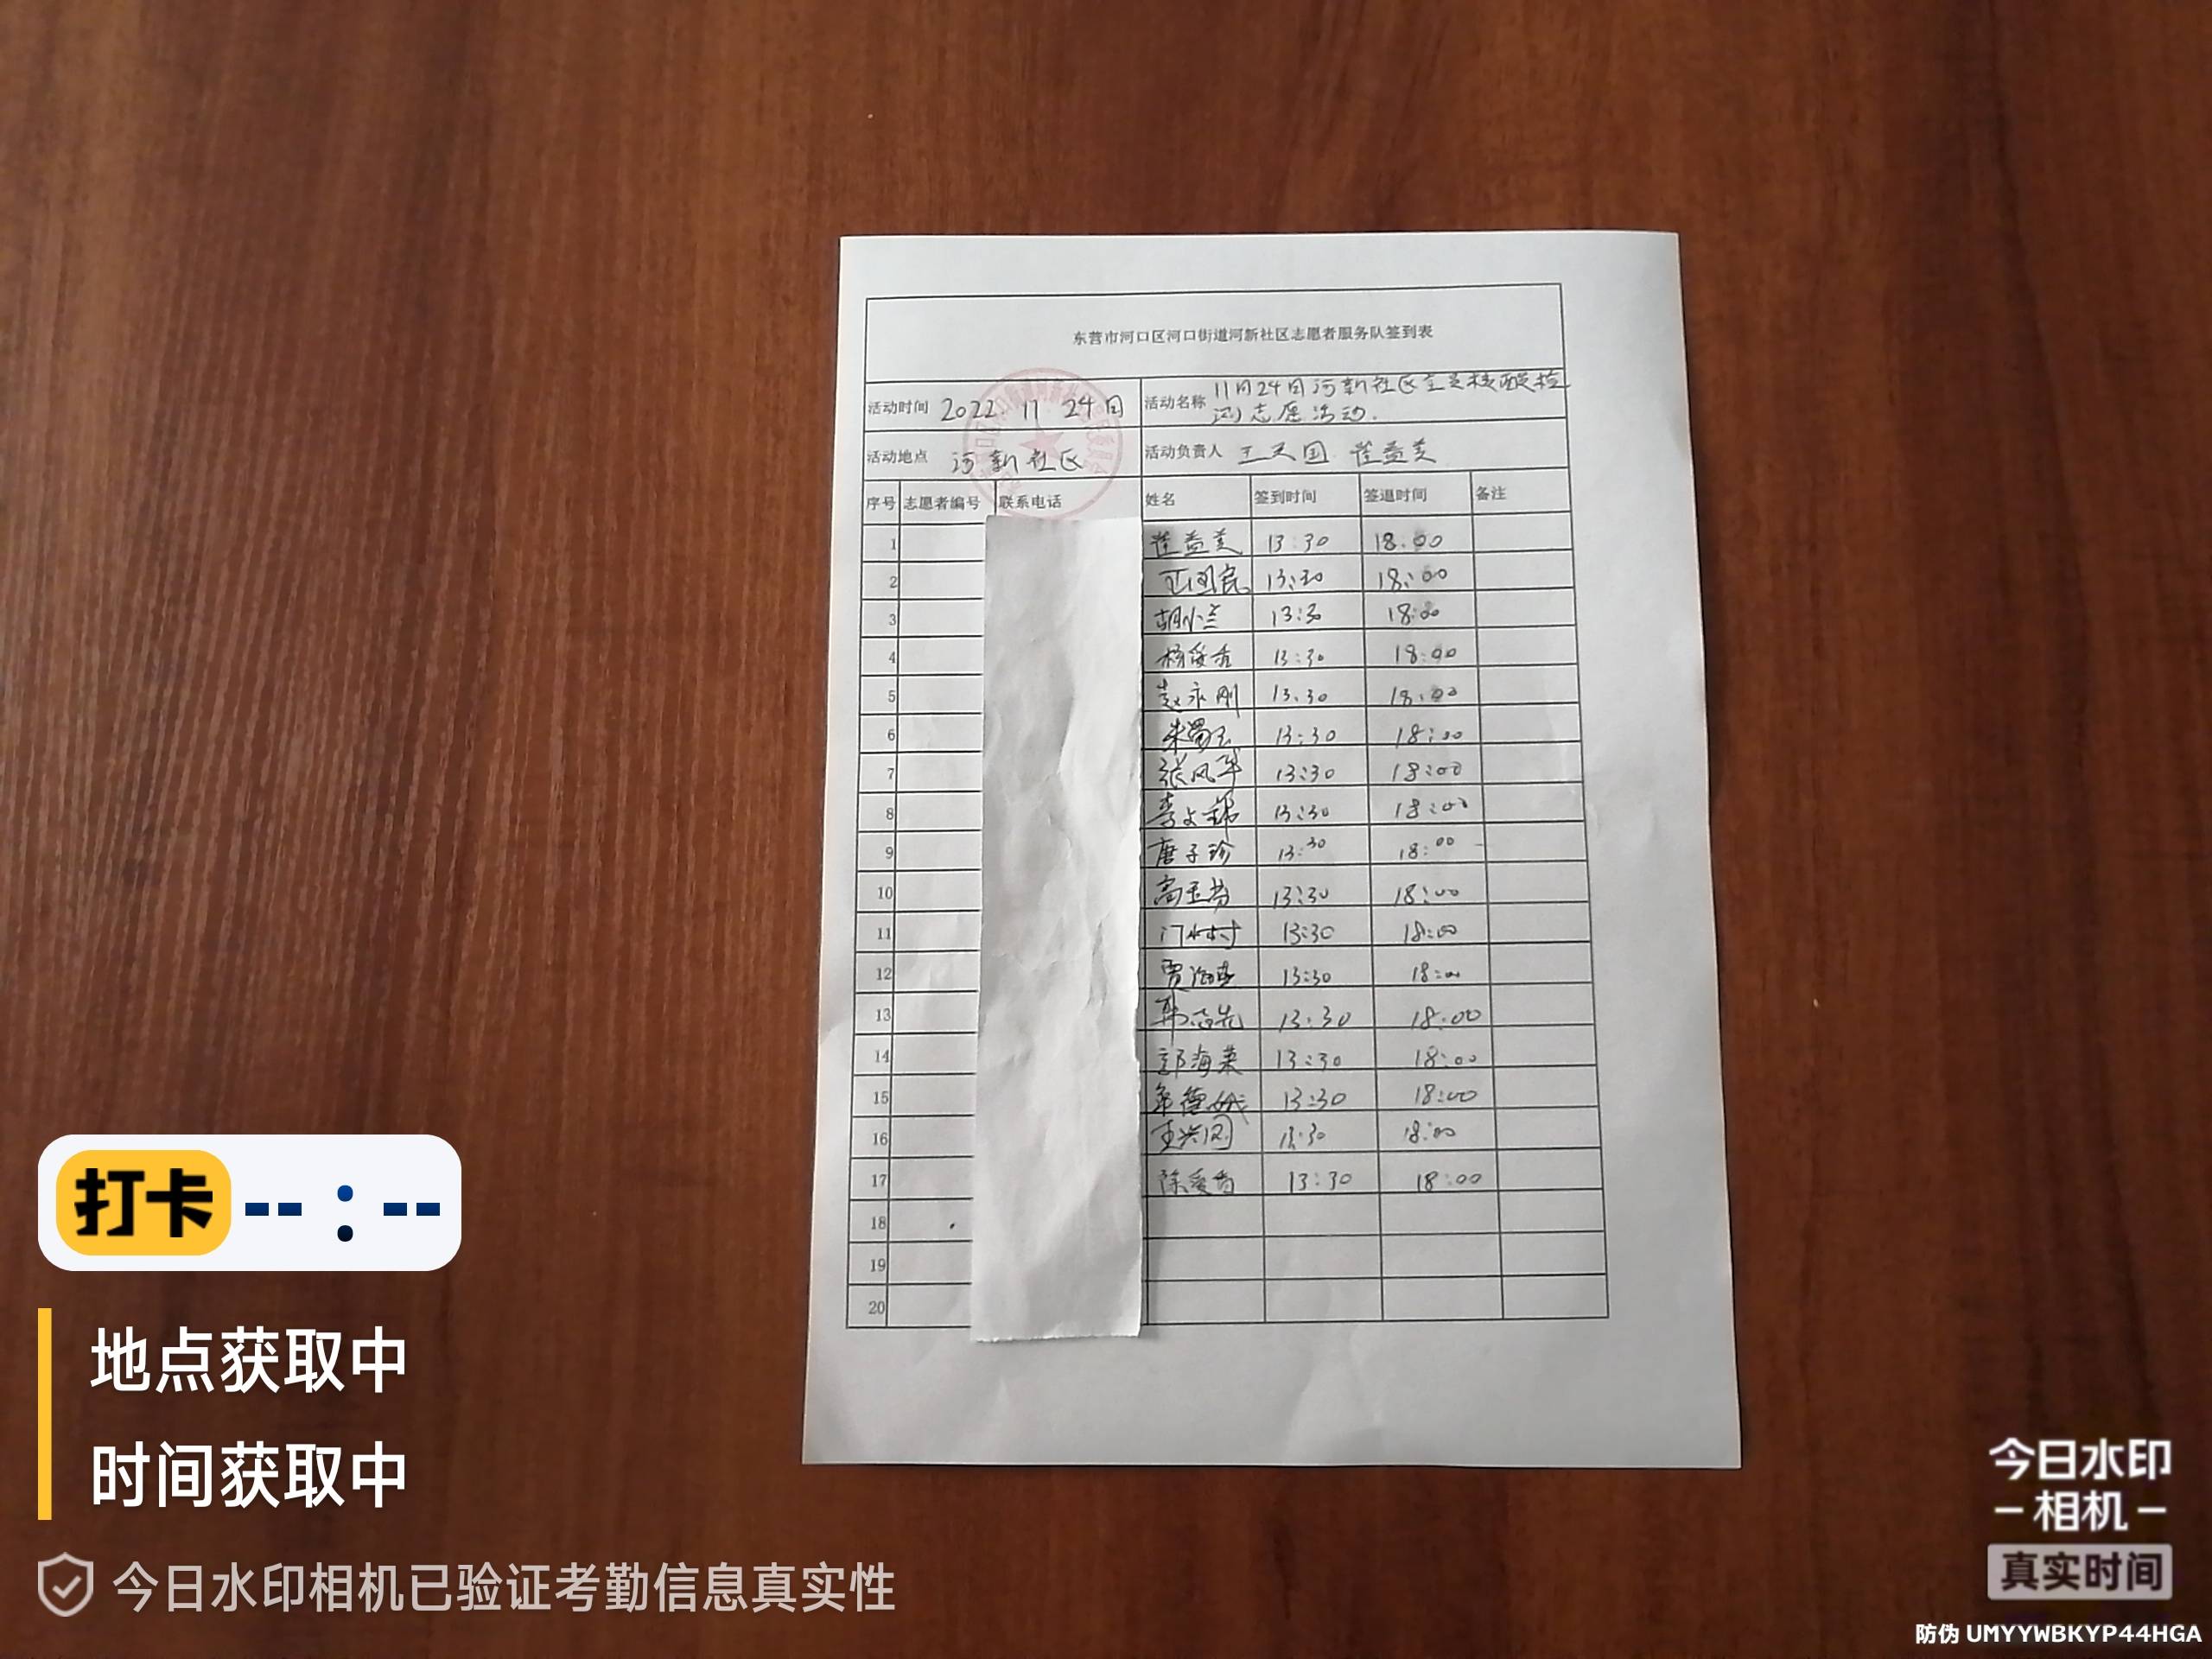 东营市河口区河口街道河新社区志愿者服务队签到表
活动时间 2022. 11 24日 活动名称 11月24日河新社区全员核酸检
测志愿活动.
活动地点 河新社区 活动负责人 王天国 崔益美
序号 志愿者编号 联系电话 姓名 签到时间 签退时间 备注
1 崔益美 13:30 18:00
2 13:30 18:00
3 胡小兰 13:30 18:00
4 杨爱香 13:30 18:00
5 赵永刚 13:30 18:00
6 13:30 18:00
7 张凤华 13:30 18:00
8 13:30 18:00
9 唐子珍 13:30 18:00
10 13:30 18:00
11 13:30 18:00
12 13:30 18:00
13 13:30 18:00
14 郭海荣 13:30 18:00
15 13:30 18:00
16 13:30 18:00
17 陈爱香 13:30 18:00
18
19
20
打卡 -- : --
地点获取中
时间获取中
今日水印相机已验证考勤信息真实性
今日水印
相机
真实时间
防伪 UMYYWBKYP44HGA